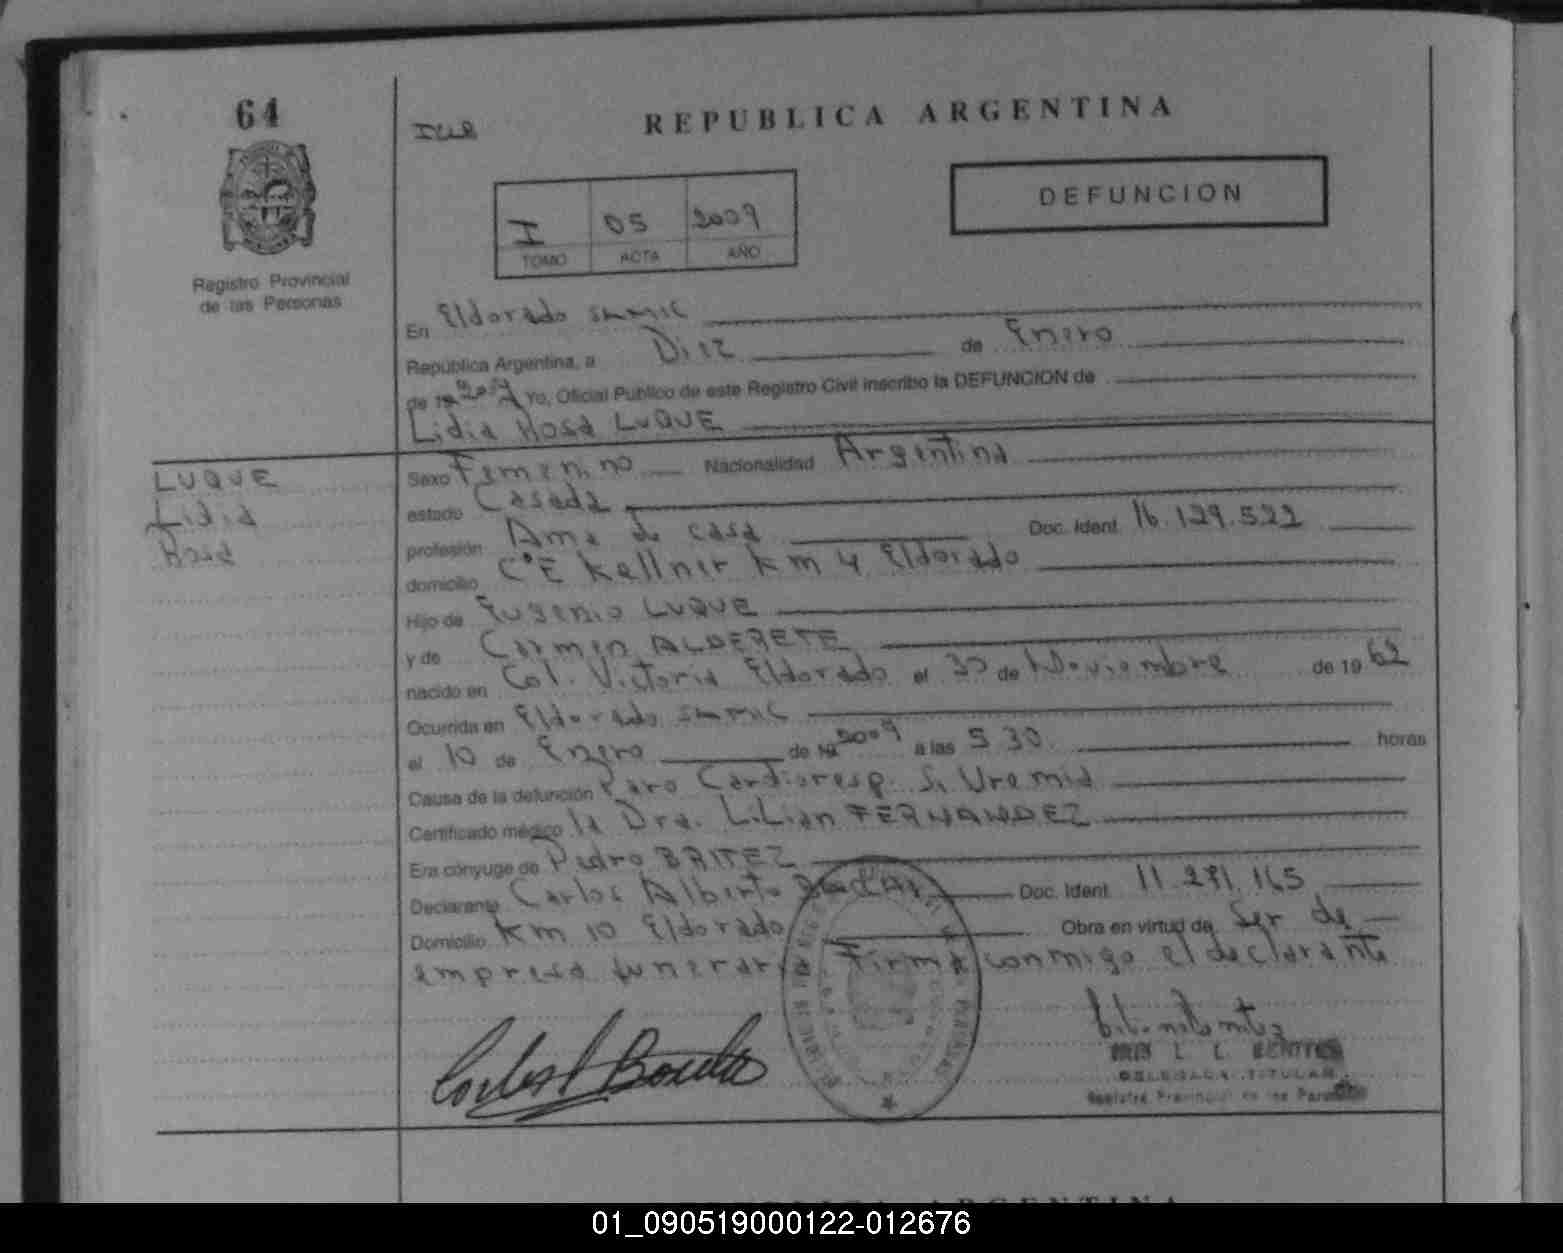 64
REPUBLICA ARGENTINA
DEFUNCION
I 05 2009
TOMO ACTA AÑO
Registro Provincial
de las Personas
En Eldorado SAMIC
República Argentina, a Diez de Enero
de 19 2009 Yo, Oficial Público de este Registro Civil inscribo la DEFUNCION de
Lidia Rosa LUQUE
LUQUE
Lidia
Rosa
Sexo Femenino Nacionalidad Argentina
estado Casada
profesión Ama de casa Doc. Ident. 16.129.522
domicilio C°E Kellner Km 4 Eldorado
Hijo de Eugenio LUQUE
y de Carmen ALDERETE
nacido en Col. Victoria Eldorado el 30 de Noviembre de 19 62
Ocurrida en Eldorado SAMIC
el 10 de Enero de 19 2009 a las 5 30 horas
Causa de la defunción Paro Cardioresp. S. Uremia
Certificado médico la Dra. Lilian FERNANDEZ
Era cónyuge de Pedro BRITEZ
Declarante Carlos Alberto Doc. Ident. 11.271.165
Domicilio Km 10 Eldorado Obra en virtud de Ser de
empresa funeraria Firma conmigo el declarante
L. L. BENITEZ
DELEGADA TITULAR
Registro Provincial de las Personas
01_090519000122-012676